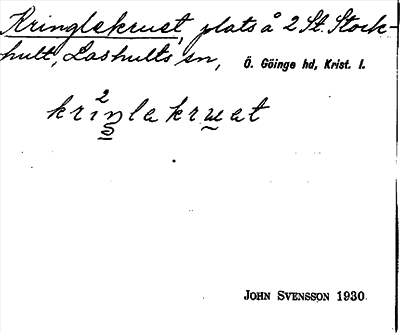 Kringlekruet, plats å 2 St. Stock-
hult, Loshults sn, Ö. Göinge hd, Krist. l.
2
kriŋlekruet
JOHN SVENSSON 1930.